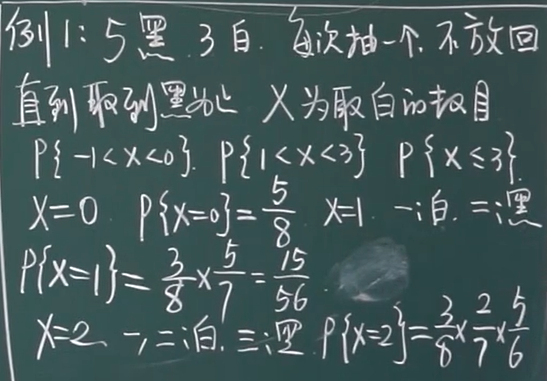 例1: 5黑 3白. 每次抽一个. 不放回
直到取到黑为止 X为取白的数目
P{-1<X<0}. P{1<X<3} P{X≤3}.
X=0 P{X=0}=5/8 X=1 一:白. 二:黑
P{X=1}=3/8×5/7=15/56
X=2 一、二:白. 三:黑 P{X=2}=3/8×2/7×5/6